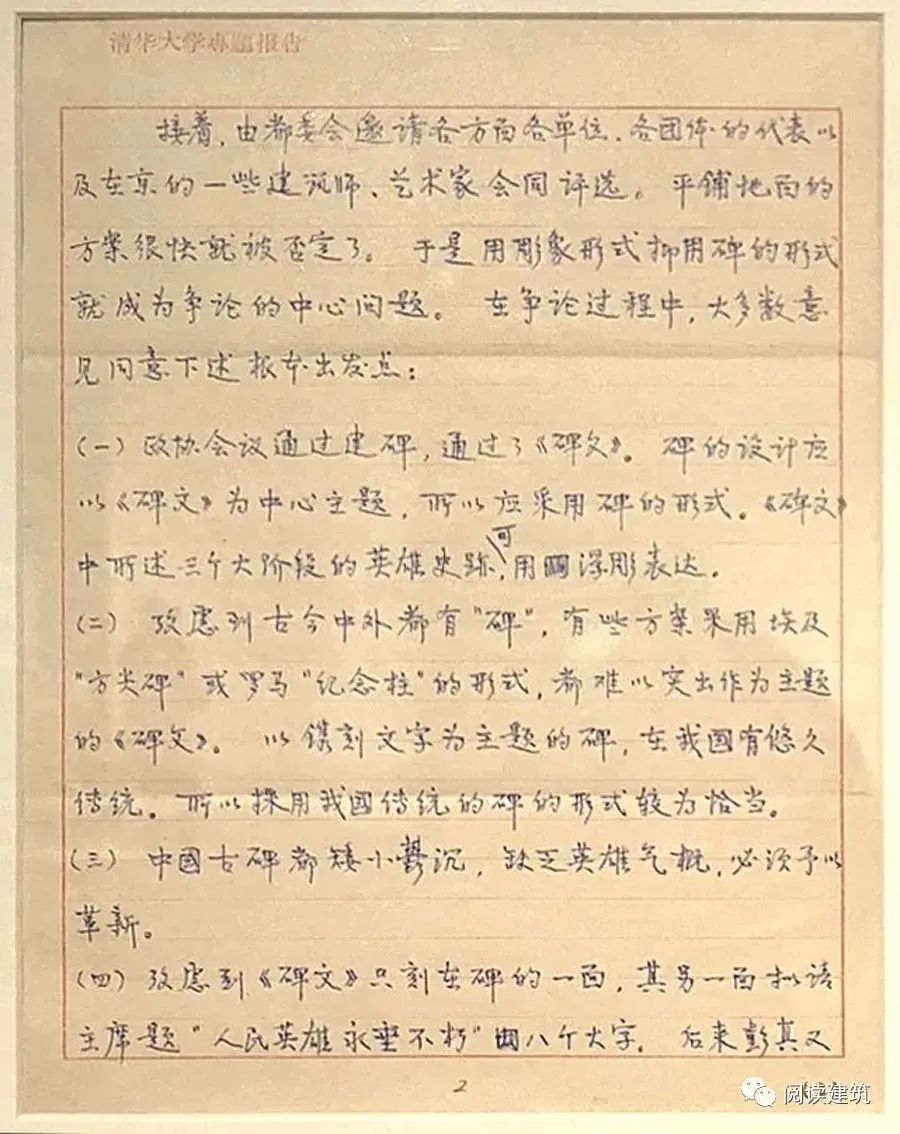 清华大学专题报告
接着，由都委会邀请各方面各单位、各团体的代表以
及在京的一些建筑师、艺术家会同评选。平铺地面的
方案很快就被否定了。于是用彫象形式抑用碑的形式
就成为争论的中心问题。在争论过程中，大多数意
见同意下述根本出发点：
(一) 政协会议通过建碑，通过了《碑文》。碑的设计应
以《碑文》为中心主题，所以应采用碑的形式。《碑文》
中所述三个大阶段的英雄史跡，可用浮彫表达。
(二) 攷虑到古今中外都有"碑"，有些方案采用埃及
"方尖碑"或罗马"纪念柱"的形式，都难以突出作为主题
的《碑文》。以镌刻文字为主题的碑，在我國有悠久
传统。所以採用我國传统的碑的形式较为恰当。
(三) 中國古碑都矮小鬱沉，缺乏英雄气概，必须予以
革新。
(四) 攷虑到《碑文》只刻在碑的一面，其另一面拟请
主席题"人民英雄永垂不朽"八个大字。后来彭真又
2
阅读建筑